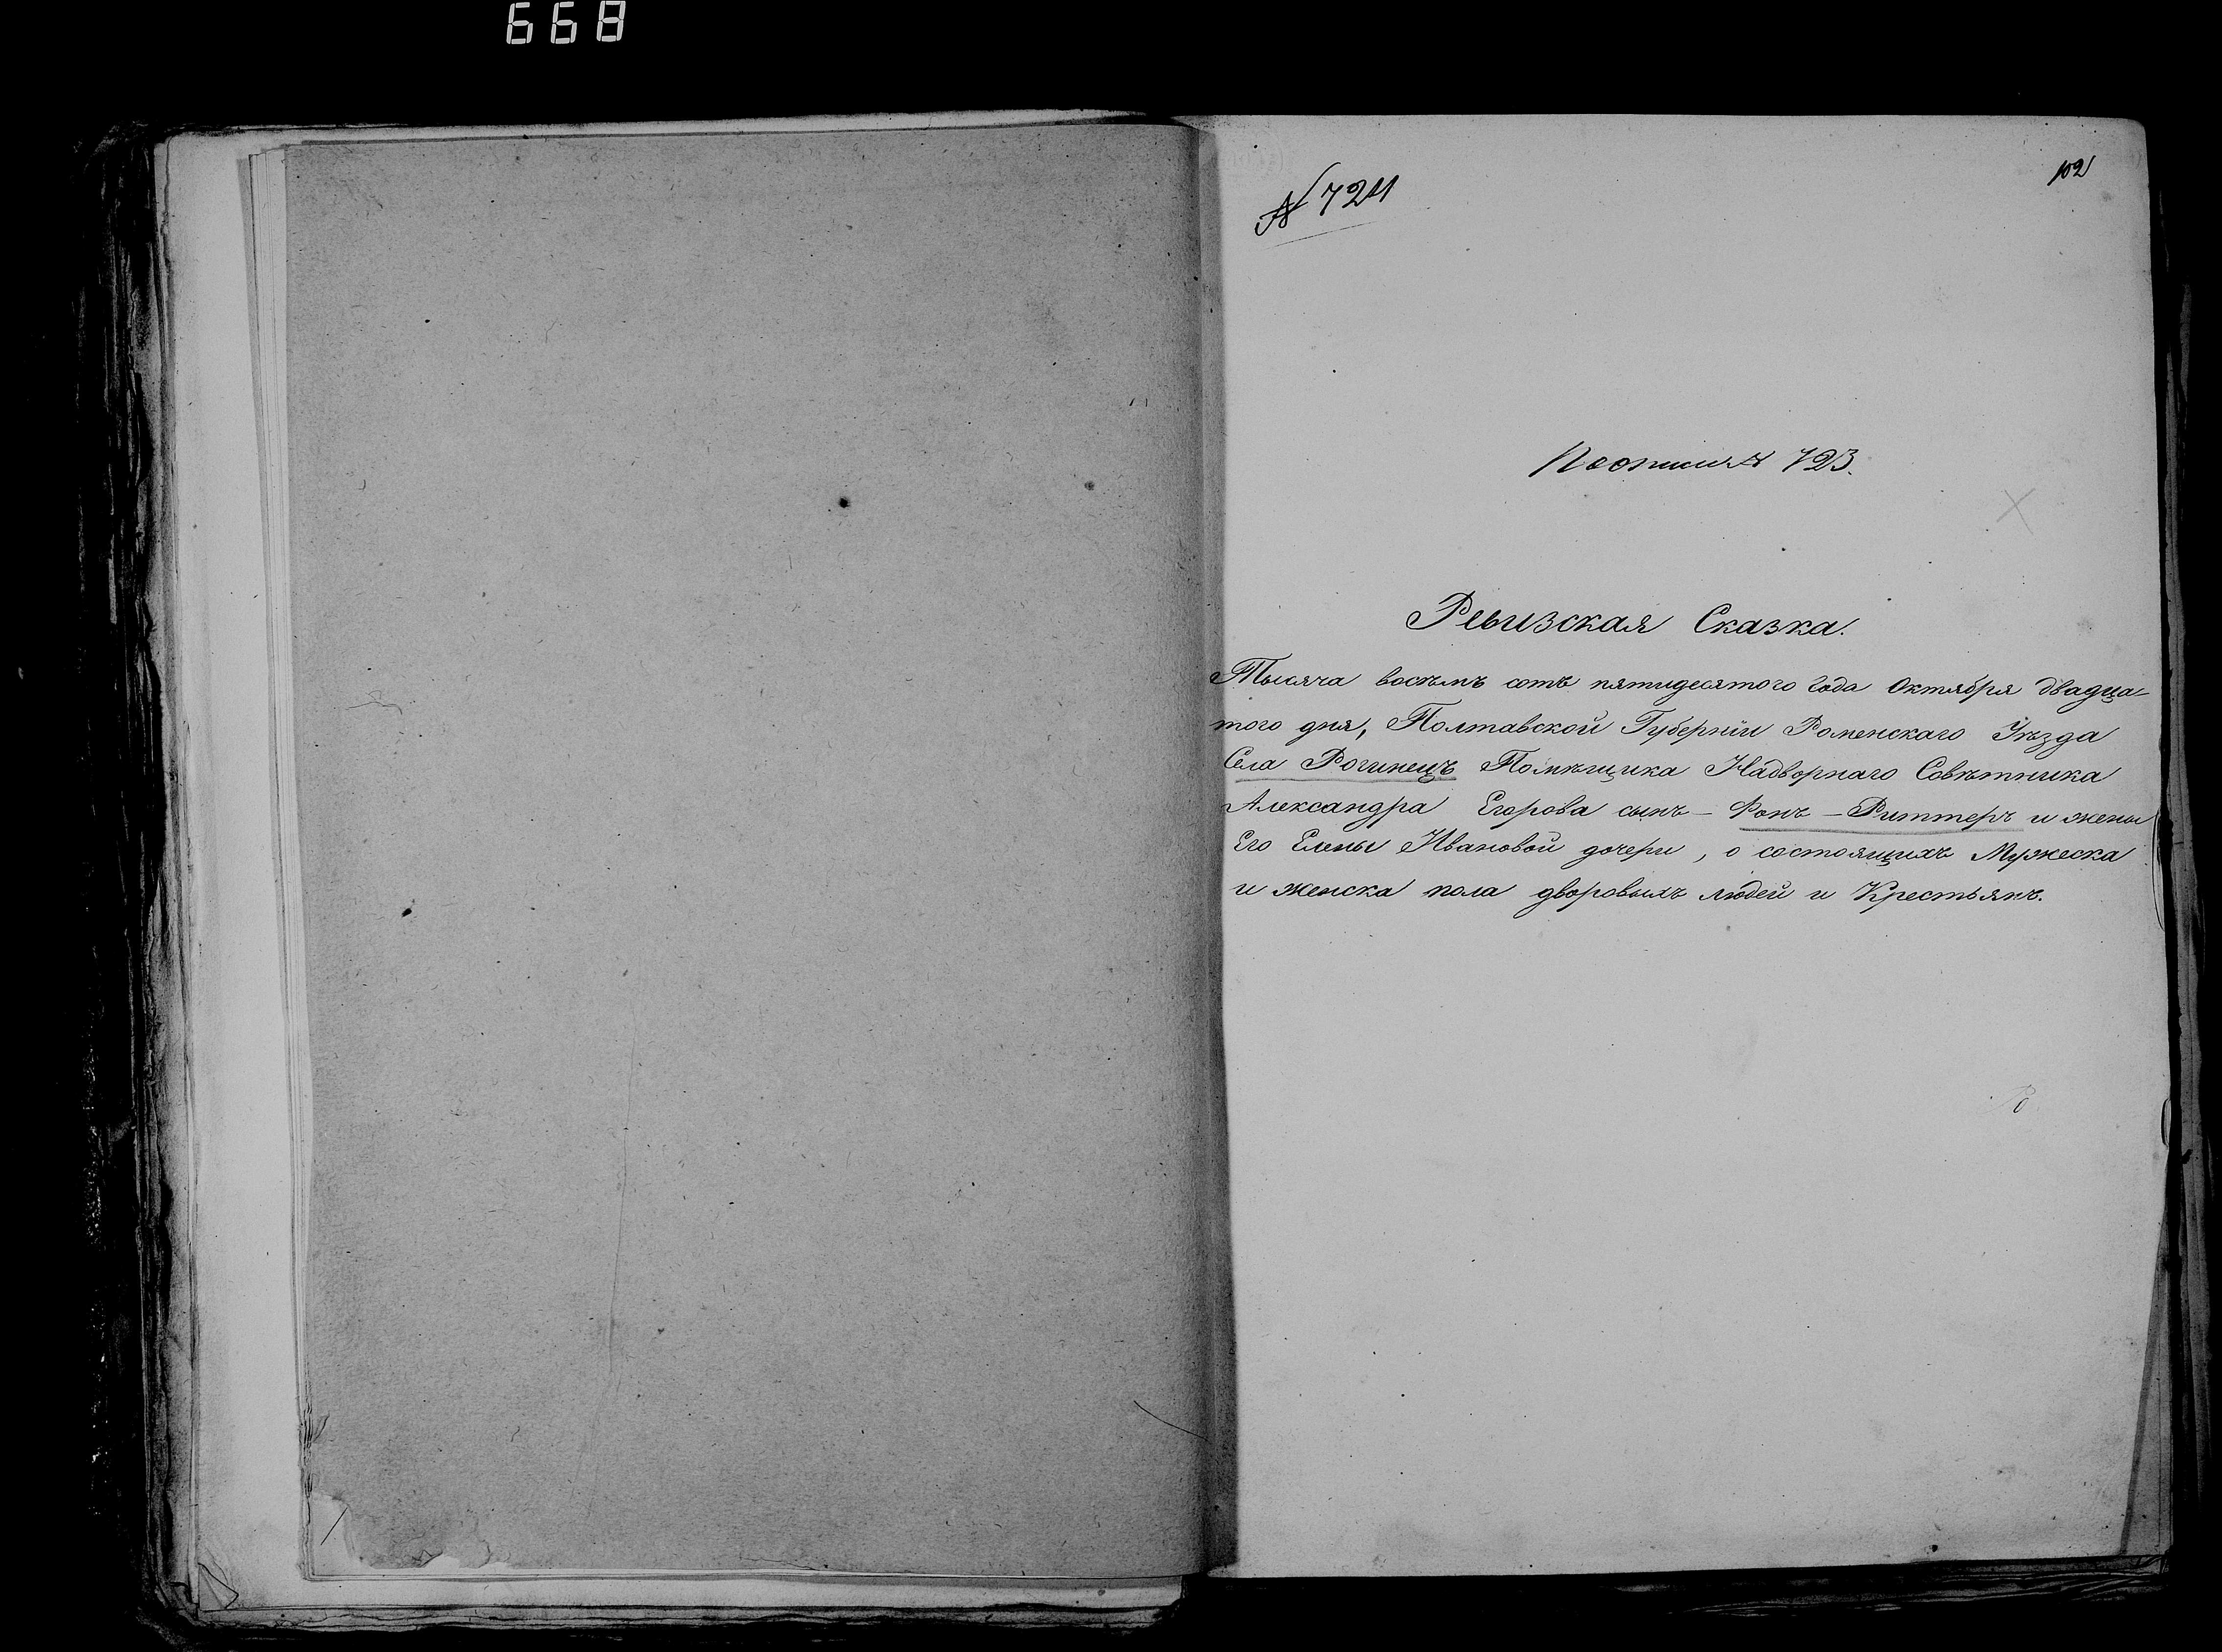 668
102
№ 724
По описи № 723.
Ревизская Сказка.
Тысяча восѣмъ сотъ пятидесятого года Октября двадца-
того дня, Полтавской Губерніи Роменскаго Уѣзда
Села Рогинецъ Помѣщика Надворнаго Совѣтника
Александра Егорова сынъ - Фонъ - Риттеръ и жены
Его Елены Ивановой дочери, о состоящихъ Мужеска
и женска пола дворовыхъ людей и Крестьянъ.